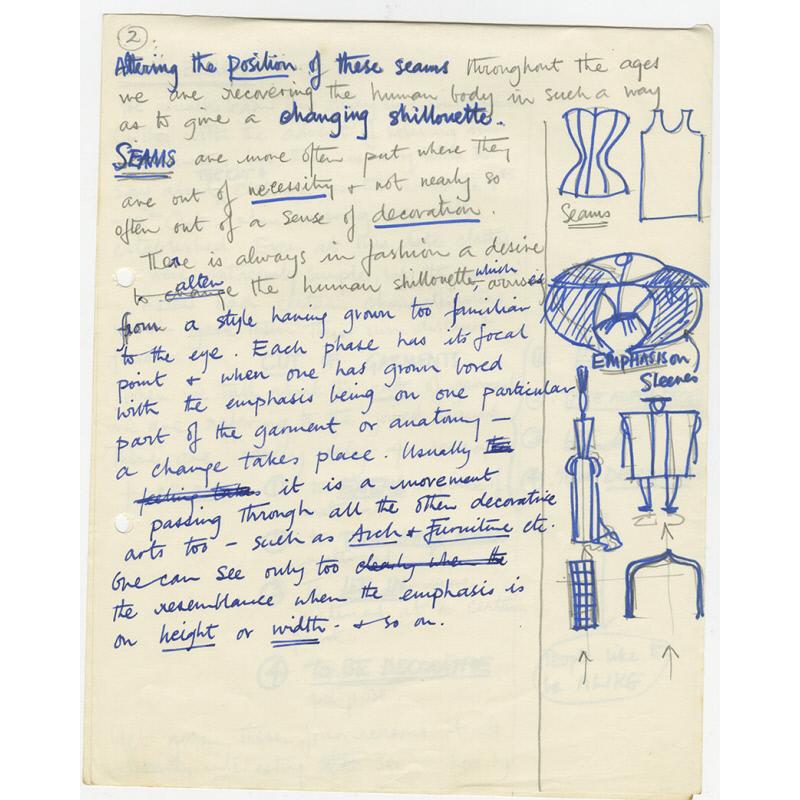 2
Altering the position of these seams throughout the ages
we are recovering the human body in such a way
as to give a changing shillouette.
SEAMS are more often put where they
are out of necessity & not nearly so
often out of a sense of decoration.
There is always in fashion a desire
to change alter the human shillouette, which arises
from a style having grown too familiar
to the eye. Each phase has its focal
point & when one has grown bored
with the emphasis being on one particular
part of the garment or anatomy –
a change takes place. Usually the
feeling takes it is a movement
passing through all the other decorative
arts too – such as Arch & Furniture etc.
One can see only too clearly when the
the resemblance when the emphasis is
on height or width. & so on.
Seams
EMPHASIS on
Sleeves
④ TO BE DECORATIVE
People like to
be ALIKE